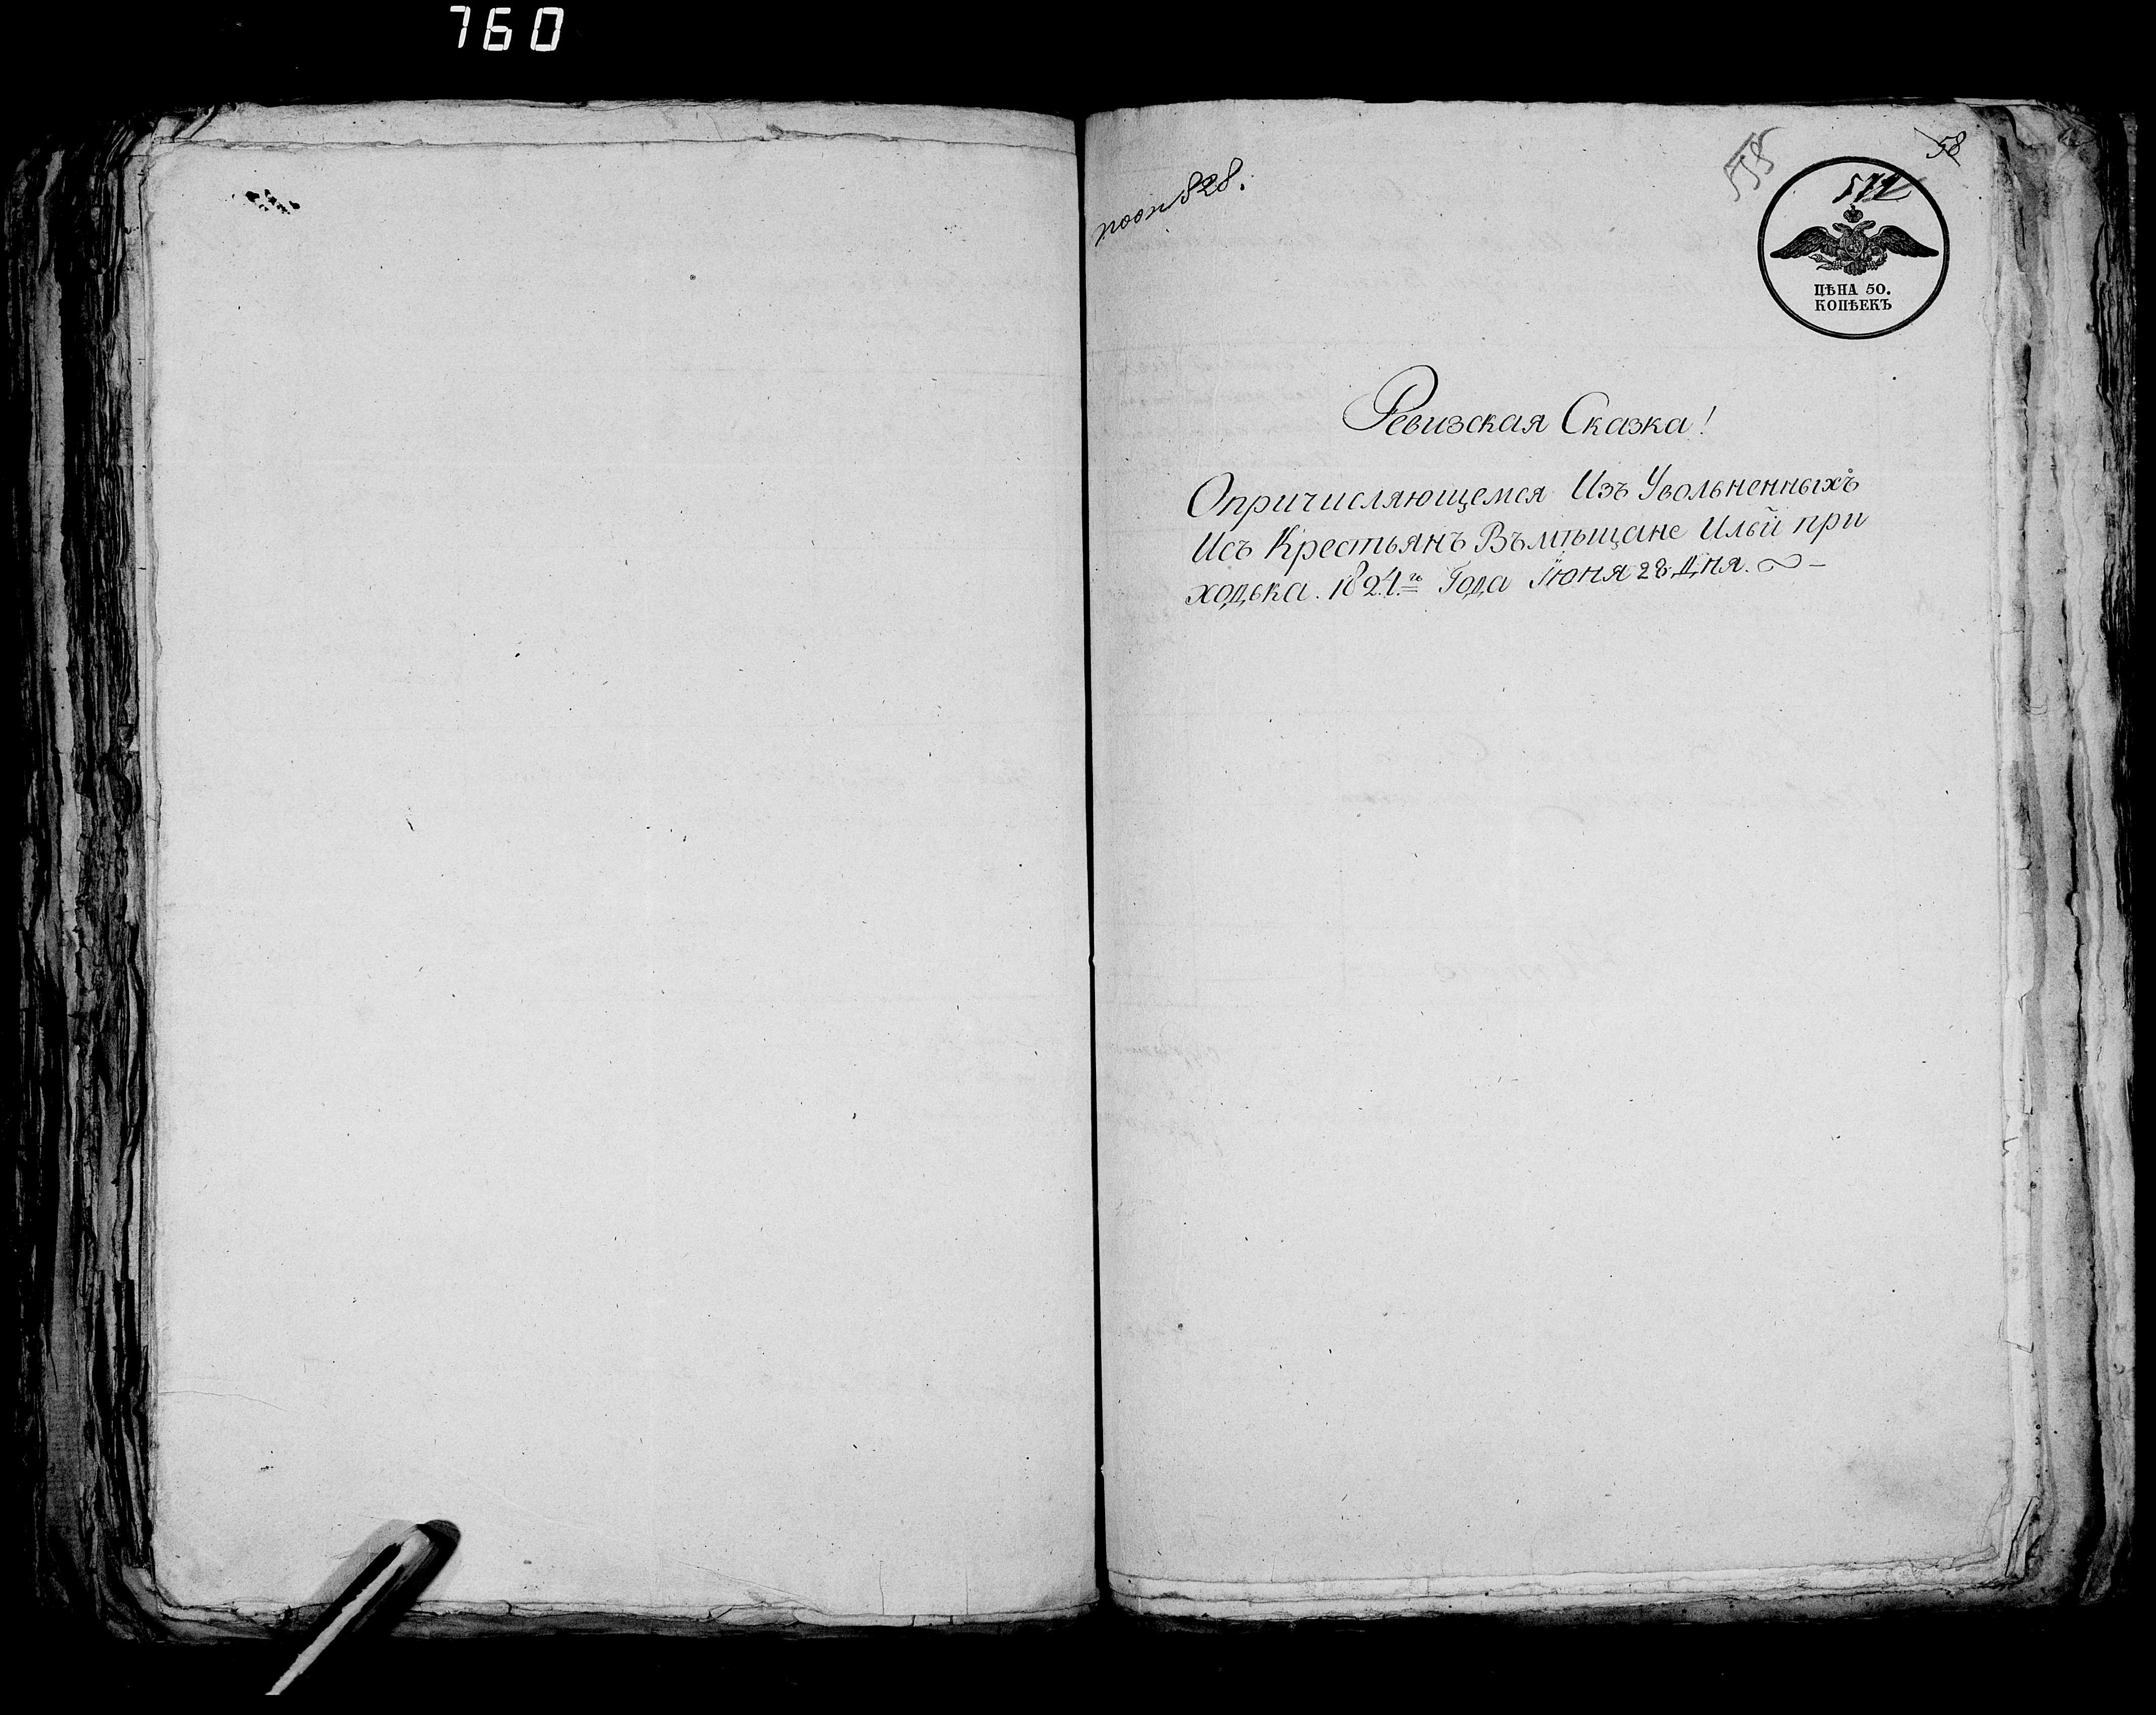 760
58
828.
572
ЦѢНА 50.
КОПѢЕКЪ
Ревизская Сказка!
Опричисляющемся Изъ Увольненныхъ
Исъ Крестьянъ Въмѣщане Ильи при
ходька. 1824.го Года Іюня 28 дня.